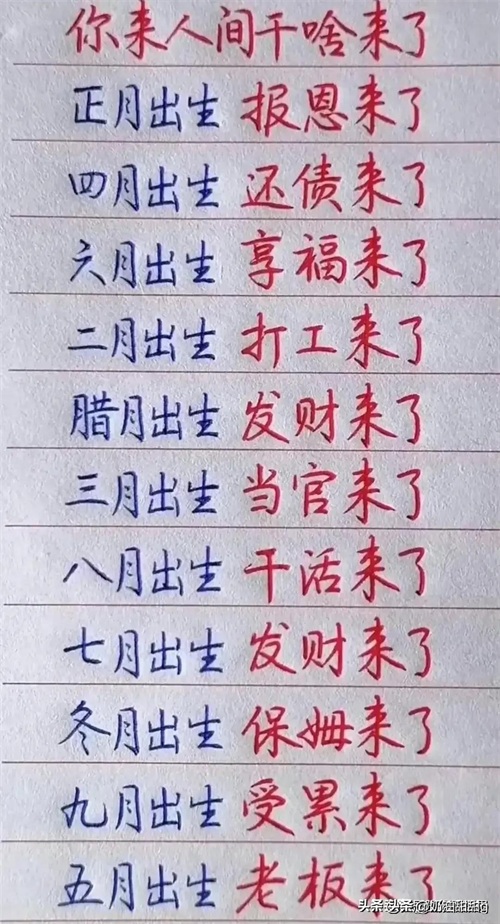 你来人间干啥来了
正月出生 报恩来了
四月出生 还债来了
六月出生 享福来了
二月出生 打工来了
腊月出生 发财来了
三月出生 当官来了
八月出生 干活来了
七月出生 发财来了
冬月出生 保姆来了
九月出生 受累来了
五月出生 老板来了
头条